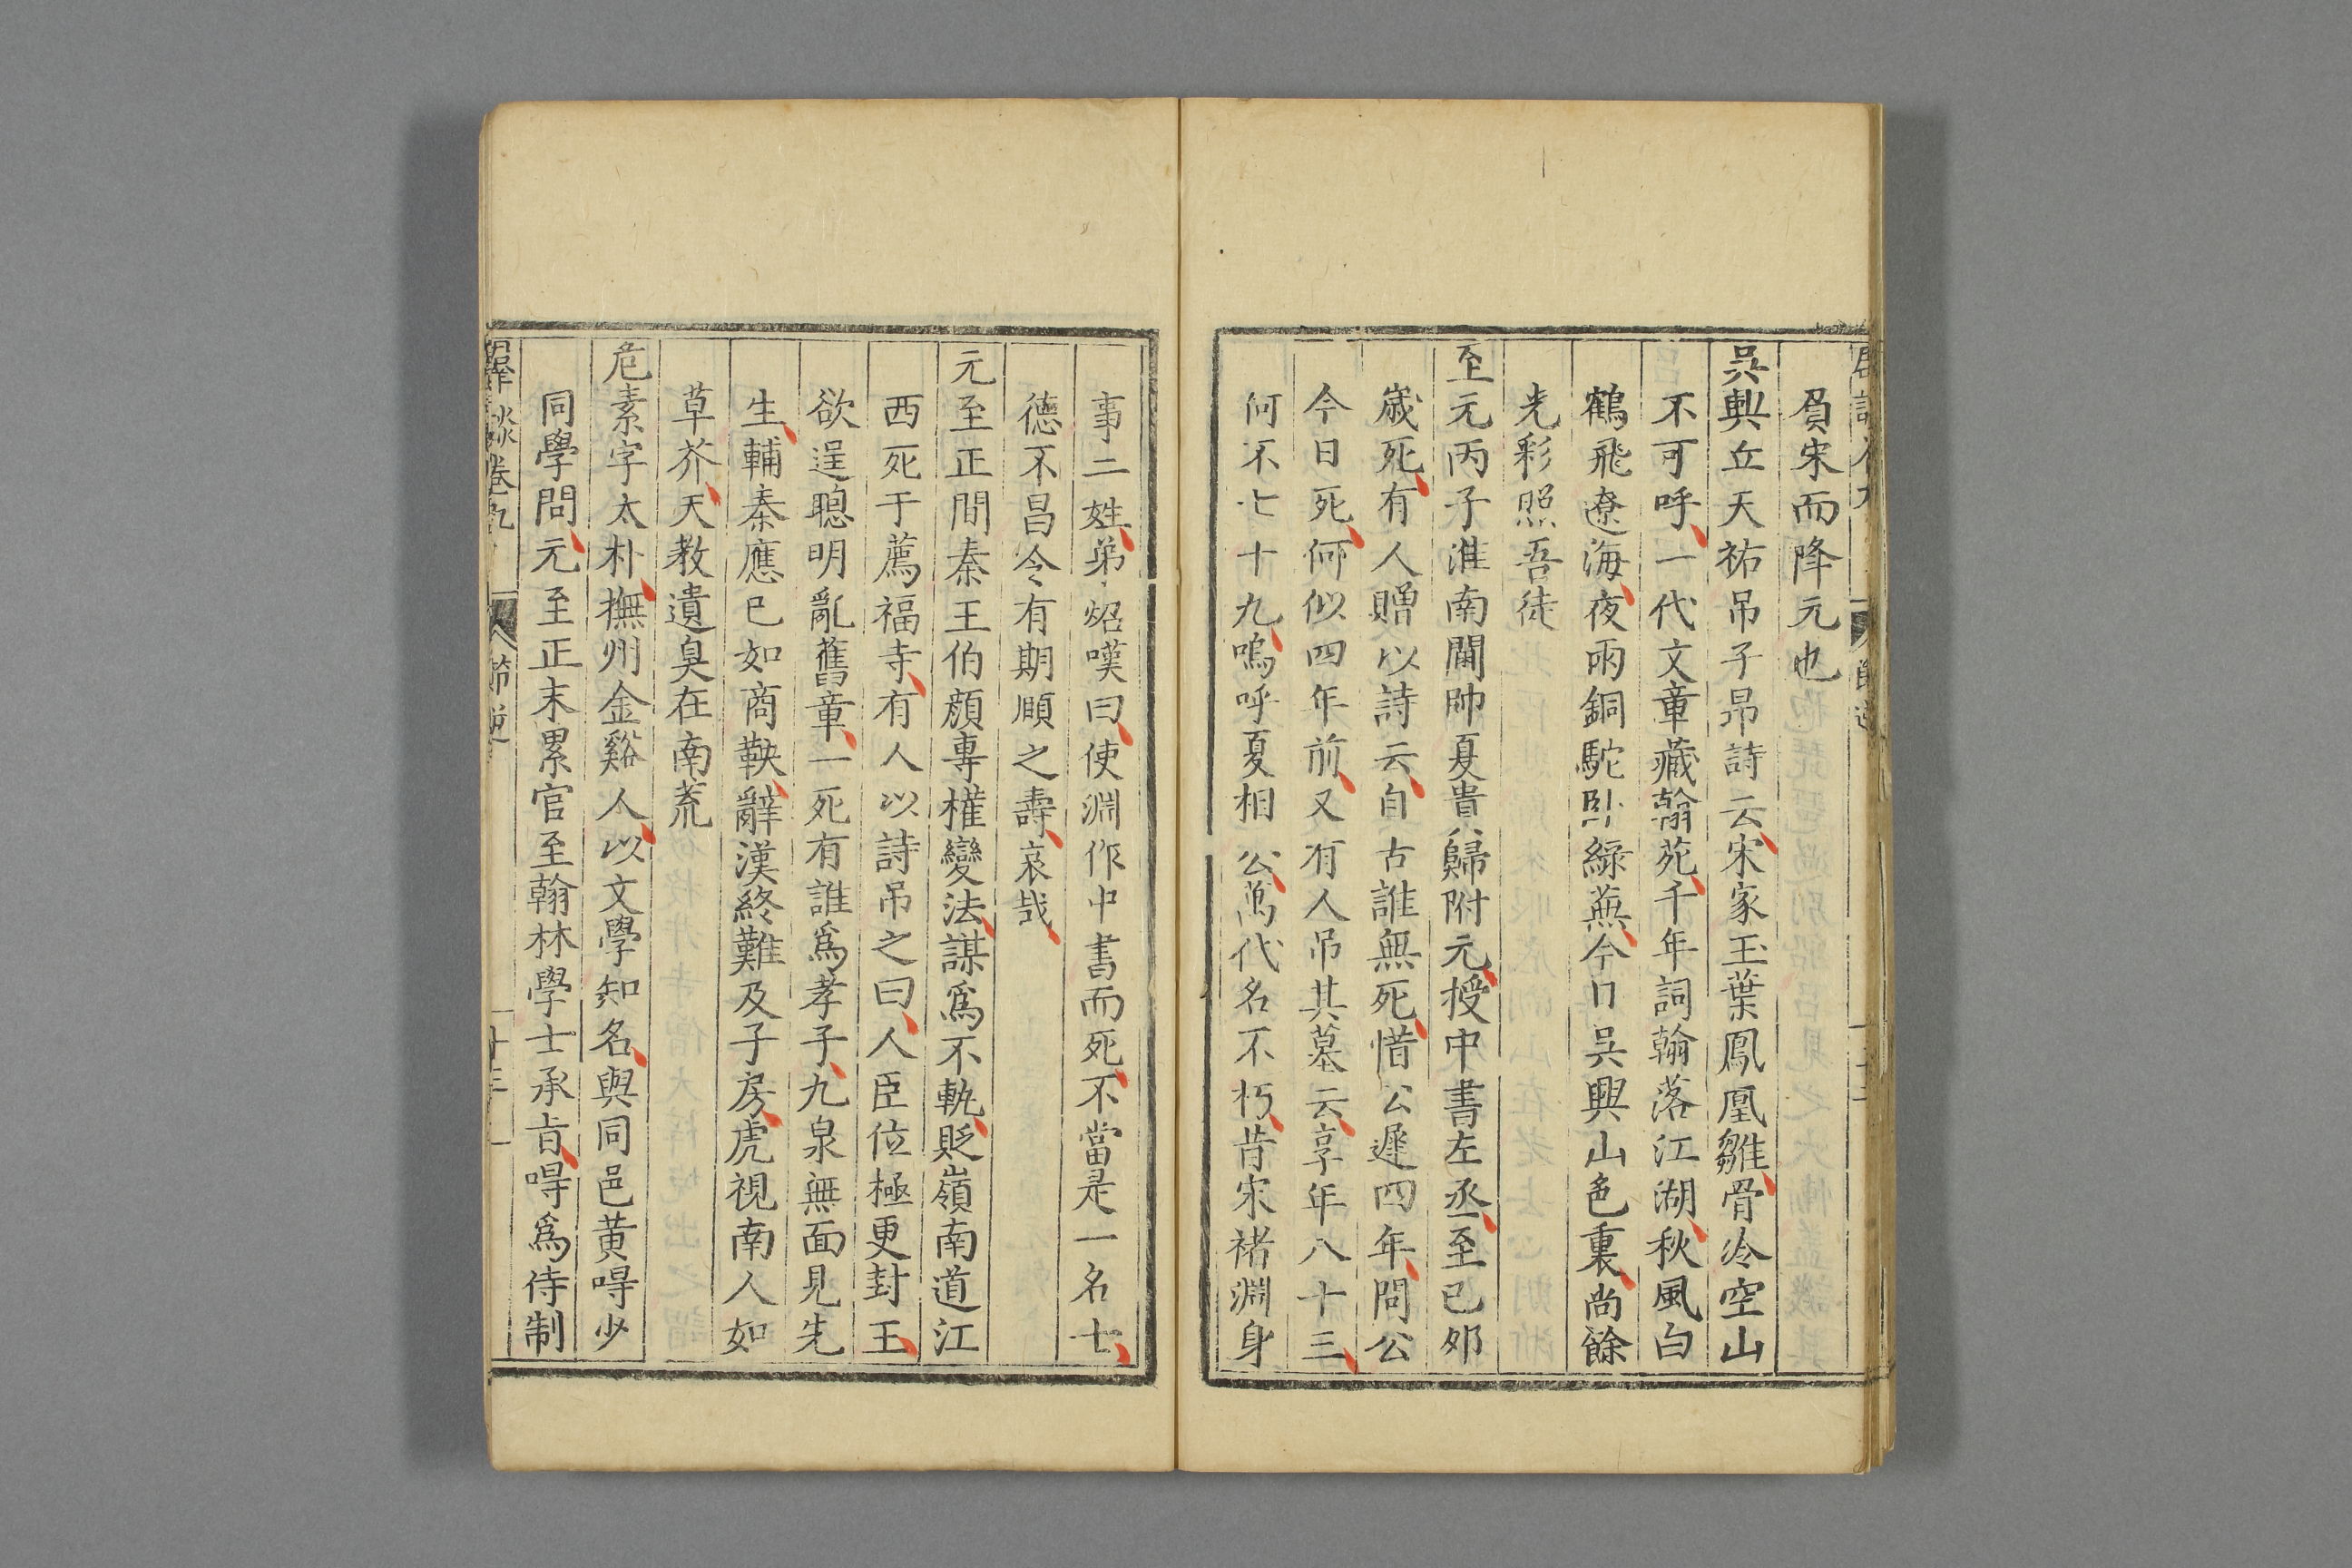 負宋而降元也
吳興丘天祐吊子昂詩云宋家玉葉鳳凰雛骨冷空山
不可呼一代文章藏翰苑千年詞翰落江湖秋風白
鶴飛遼海夜雨銅駝臥綠蕪今日吳興山色裏尚餘
光彩照吾徒
至元丙子淮南閫帥夏貴歸附元授中書左丞至己夘
歲死有人贈以詩云自古誰無死惜公遲四年問公
今日死何似四年前又有人吊其墓云享年八十三
何不七十九嗚呼夏相公萬代名不朽昔宋褚淵身
事二姓弟炤嘆曰使淵作中書而死不當是一名士
德不昌令有期頤之壽哀哉
元至正間秦王伯顔專權變法謀為不軌貶嶺南道江
西死于薦福寺有人以詩吊之曰人臣位極更封王
欲逞聰明亂舊章一死有誰為孝子九泉無面見先
生輔秦應已如商鞅辭漢終難及子房虎視南人如
草芥天教遺臭在南荒
危素字太朴撫州金谿人以文學知名與同邑黃㝵少
同學問元至正末累官至翰林學士承旨㝵為侍制
卷九
節逆
十三